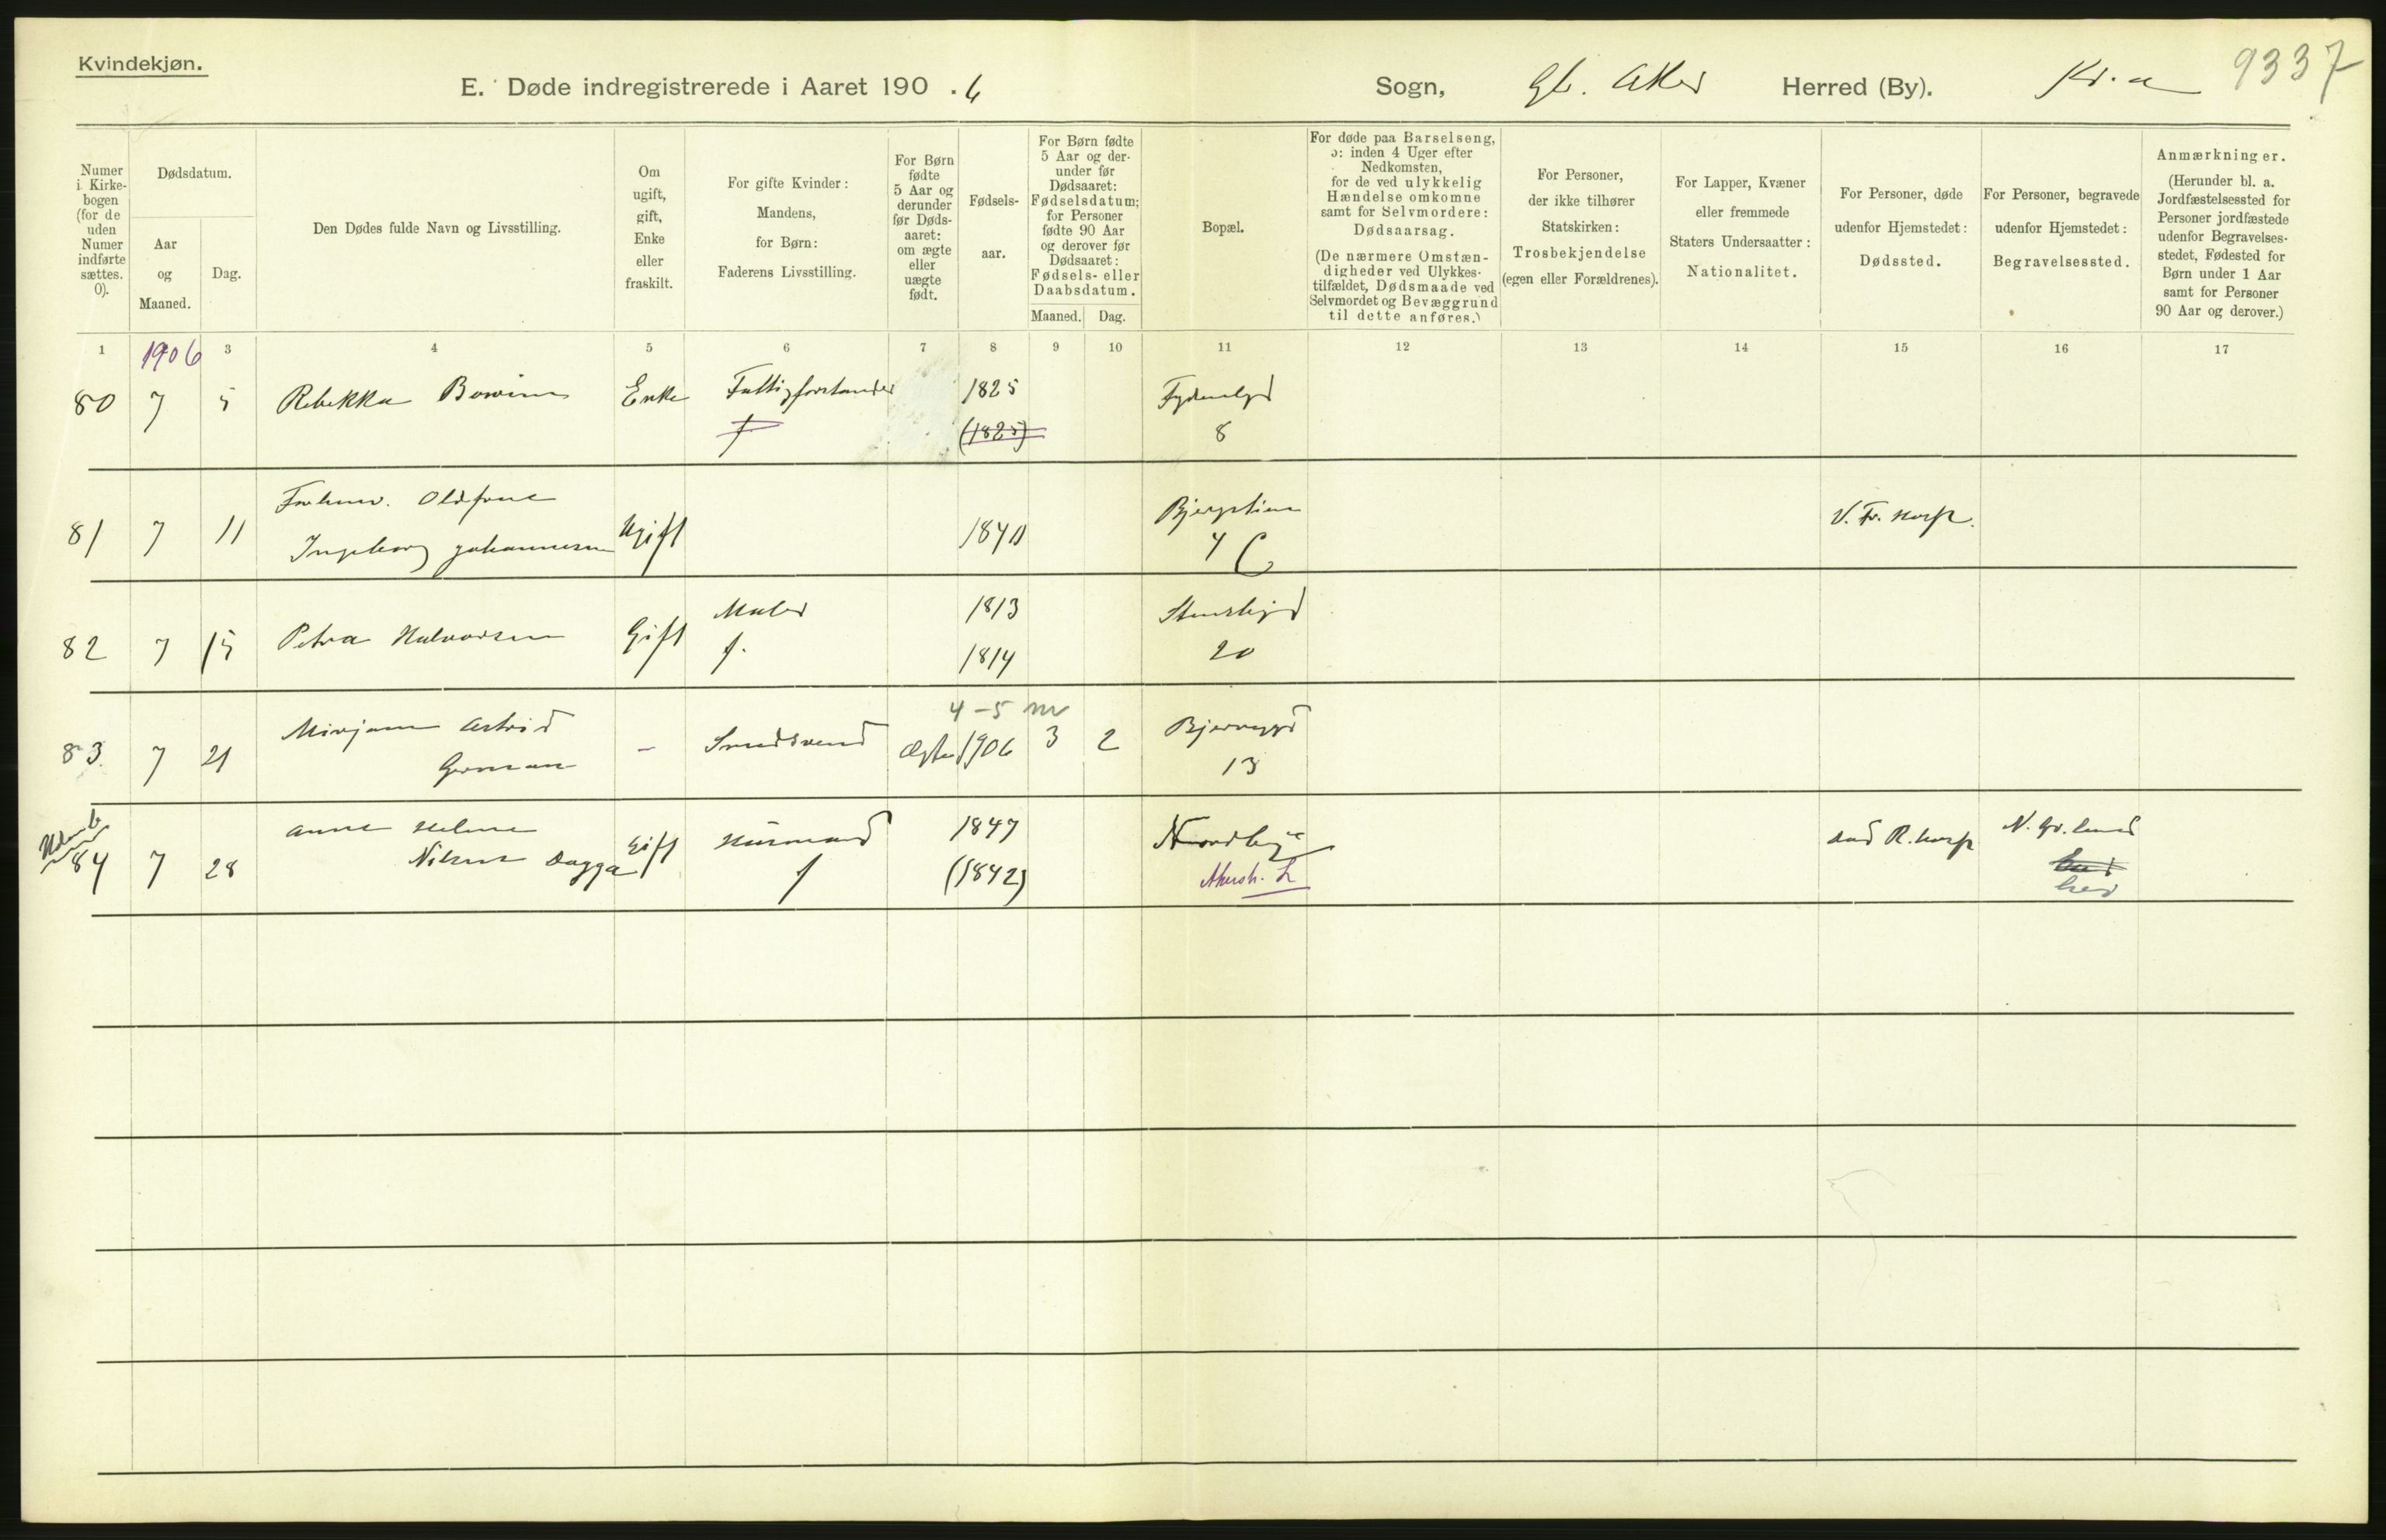 Kvindekjøn.
E. Døde indregistrerede i Aaret 190 . 6
Sogn, Gl. Aker Herred (By). Kr.a
9337
Numer i Kirkebogen (for de uden Numer indførte sættes. 0).
Dødsdatum.
Aar og Maaned.
Dag.
Den Dødes fulde Navn og Livsstilling.
Om ugift, gift, Enke eller fraskilt.
For gifte Kvinder: Mandens, for Børn: Faderens Livsstilling.
For Børn fødte 5 Aar og derunder før Dødsaaret: om ægte eller uægte født.
Fødselsaar.
For Børn fødte 5 Aar og derunder før Dødsaaret: Fødselsdatum; for Personer fødte 90 Aar og derover før Dødsaaret: Fødsels- eller Daabsdatum.
Maaned. Dag.
Bopæl.
For døde paa Barselseng, ɔ: inden 4 Uger efter Nedkomsten, for de ved ulykkelig Hændelse omkomne samt for Selvmordere: Dødsaarsag.
(De nærmere Omstændigheder ved Ulykkestilfældet, Dødsmaade ved Selvmordet og Bevæggrund til dette anføres.)
For Personer, der ikke tilhører Statskirken: Trosbekjendelse (egen eller Forældrenes).
For Lapper, Kvæner eller fremmede Staters Undersaatter: Nationalitet.
For Personer, døde udenfor Hjemstedet: Dødssted.
For Personer, begravede udenfor Hjemstedet: Begravelsessted.
Anmærkninger.
(Herunder bl. a. Jordfæstelsessted for Personer jordfæstede udenfor Begravelsesstedet, Fødested for Børn under 1 Aar samt for Personer 90 Aar og derover.)
1 1906 3 4 5 6 7 8 9 10 11 12 13 14 15 16 17
80 7 5 Rebekka Enke Fattigforstander 1825
† (1825) 8
81 7 11 Oldfrue Ugift 1840 Bjergstien V. Fr. hosp.
Ingeborg Johannesen 4 C
82 7 15 Petra Halvorsen Gift Maler 1813 Stensbgd
†. 1814 20
4-5 m
83 7 21 Mirjam Astrid - Smedsvend Ægte 1906 3 2 Bjerregd
German 13
84 7 28 Anne Helene Gift Husmand 1847 Nordbye And R. hosp N. Gr. lund
Nilsen Dagga † (1842) Akersh. L
her